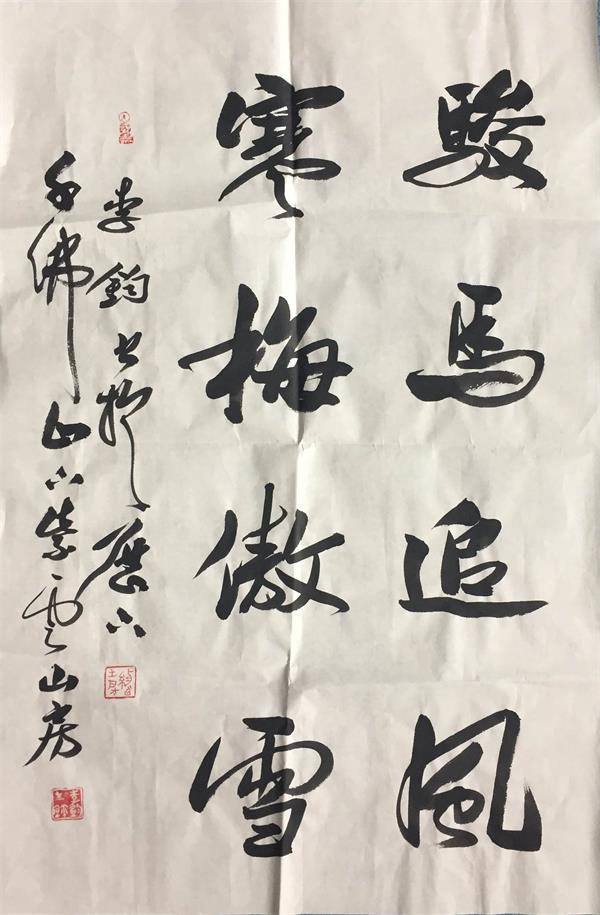 駿馬追風
寒梅傲雪
李鈞書於歷下
千佛山下紫雲山房